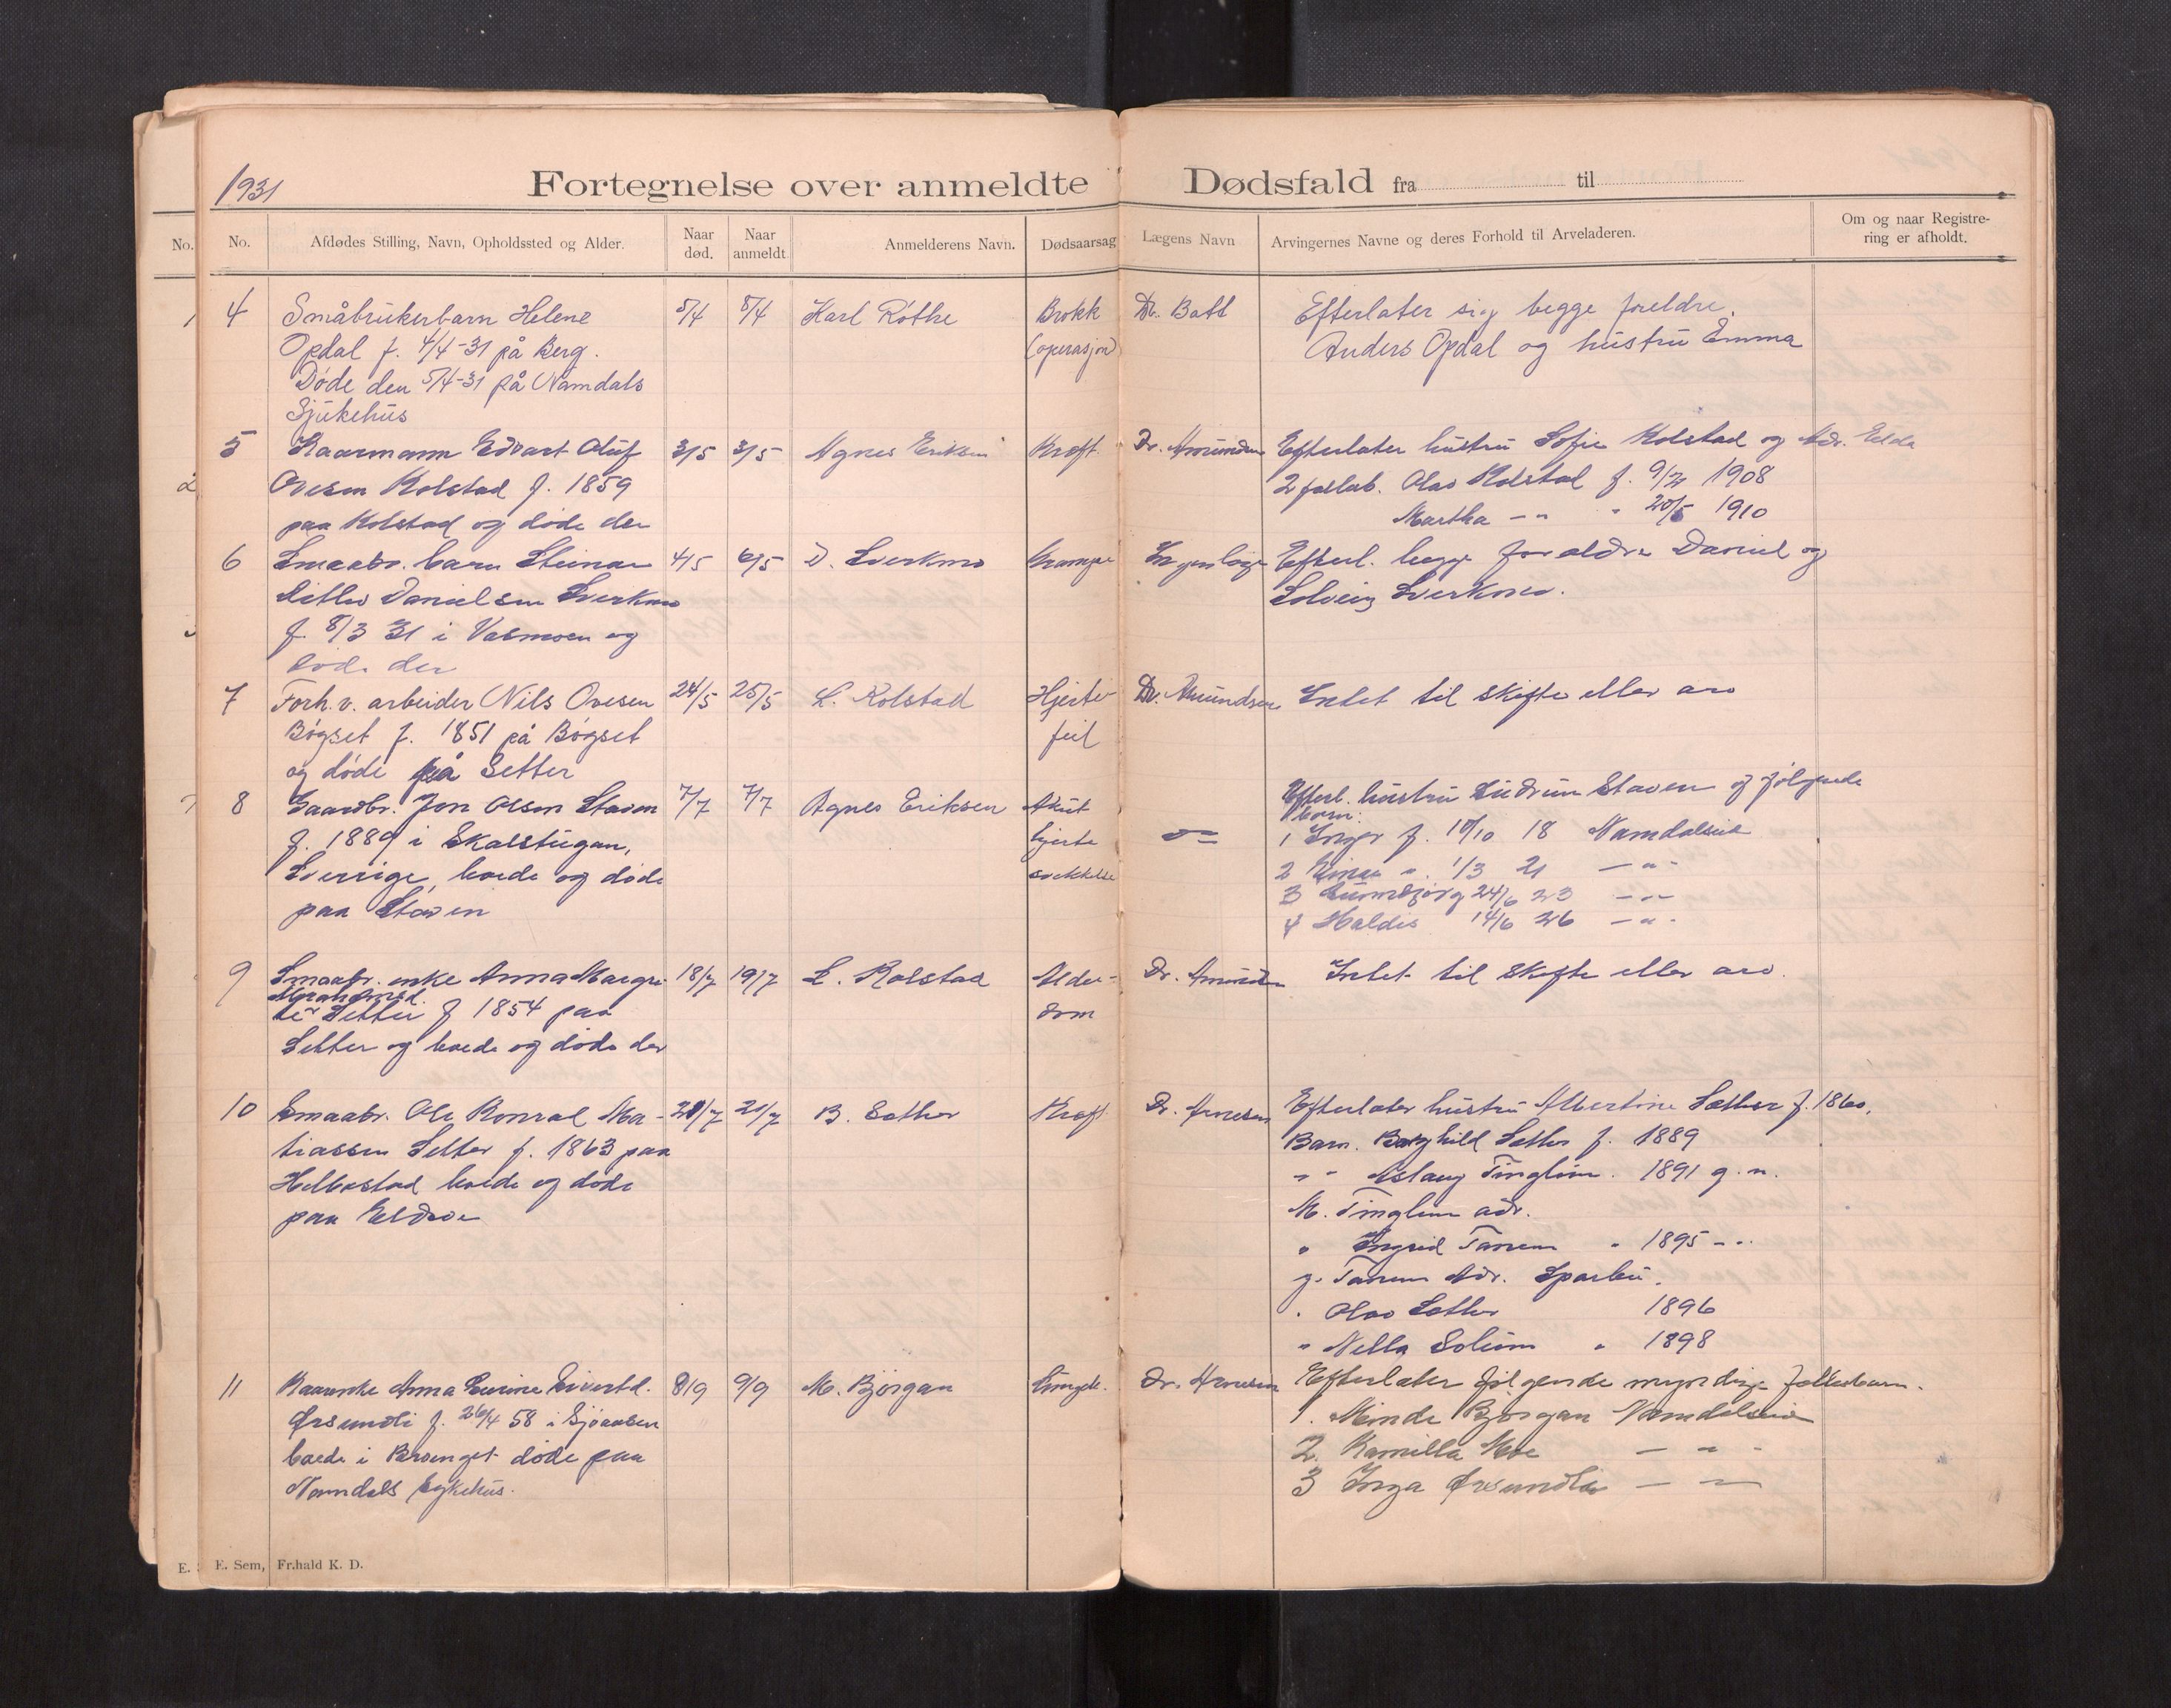 1931
Fortegnelse over anmeldte Dødsfald fra til
No. No. Afdødes Stilling, Navn, Opholdssted og Alder. Naar død. Naar anmeldt. Anmelderens Navn. Dødsaarsag Lægens Navn Arvingernes Navne og deres Forhold til Arveladeren. Om og naar Registrering er afholdt.
4 Småbrukerbarn Helene 5/4 8/4 Karl Röthe Brokk Dr. Efterlater sig begge foreldre.
Opdal f. 4/4-31 på Berg. (operasjon) Anders Opdal og hustru Emma
Døde den 5/4-31 på Namdals
Sjukehus
5 Kaarmann Edvart Oluf 3/5 3/5 Agnes Eriksen Kreft Dr. Amundsen Efterlater hustru Sofie Kolstad og Adr. Elda
Ovesen Kolstad f. 1859 2 fellesb. Olav Kolstad f. 9/2 1908
paa Kolstad og døde der Martha - " " 20/5 1910
6 Smaabr. barn Steinar 4/5 6/5 D. Sverkmo Krampe Ingen læge Efterl. begge foreldre Daniel og
Ditlev Danielsen Sverkmo Solveig Sverkmo.
f. 8/3 31 i Vasmoen og
døde der
7 Forh.v. arbeider Nils Ovesen 24/5 25/5 L. Kolstad Hjerte- Dr. Amundsen Intet til skifte eller arv
Bøgset f. 1851 på Bøgset feil
og døde på Setter
8 Gaardbr. Jon Olsen Staven 7/7 7/7 Agnes Eriksen Akut - " - Efterl. hustru Gudrun Staven og følgende
barn:
f. 1889 i Skalstugan, hjerte 1 Inger f. 10/10 18 Namdalseid
Sverrige, boede og døde svekkelse 2 Einar " 1/3 21 - " -
3 Gunnbjørg 24/6 23 - " -
paa Staven 4 Haldis 14/6 26 - " -
9 Smaabr. enke Anna Margre- 18/7 19/7 L. Kolstad Alder- Dr. Amundsen Intet til skifte eller arv.
Abrahamsd.
te Setter f 1854 paa dom
Setter og boede og døde der
10 Smaabr. Ole Konrad Ma- 20/7 21/7 B. Sæther Kreft Dr. Arnesen Efterlater hustru Albertine Sæther f. 1860.
tiassen Setter f. 1863 paa Barn. Borghild Sæther f. 1889
Helbostad boede og døde " " Aslaug Tinglum. 1891 g. m.
paa Eldøen M. Tinglum adr.
" Ingrid Tanem " 1895 - " -
g. Tanem Adr. Sparbu.
" Olav Sæther 1896
" Nella Solum " 1898
11 Kaarenke Anna Eurine Sivertd. 8/9 9/9 M. Bjørgan Dr. Arnesen Efterlater følgende myndige fellesbarn.
Øresundli f. 26/4 58 i Sjøaasen 1. Minda Bjørgan Namdalseid
boede i døde paa 2. Kamilla Moe - " -
Namdals sykehus. 3 Inga Øresundli - " -
E. Sem, Fr.hald K. D.